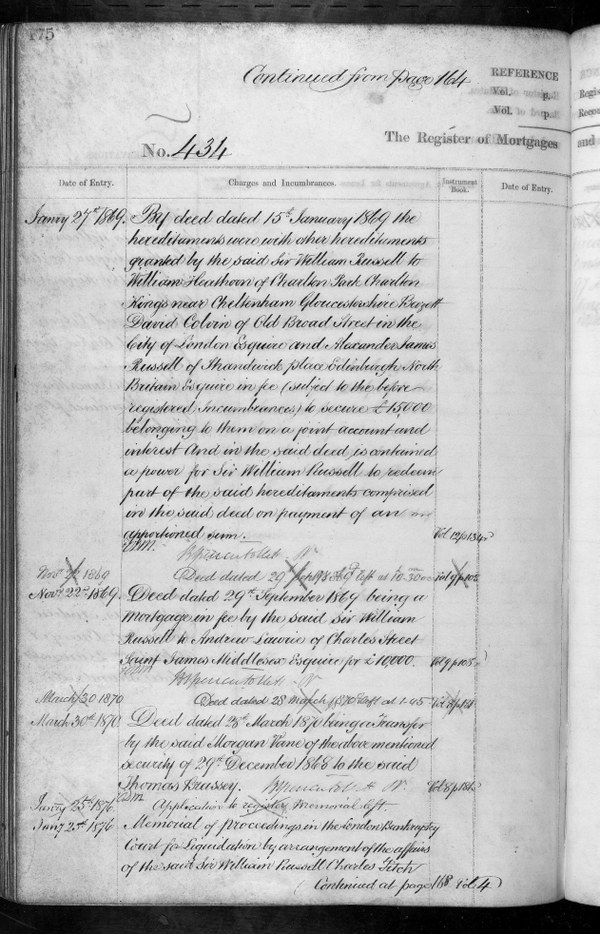 175
Continued from page 164
REFERENCE
Vol. p.
Vol. p.
No. 434
The Register of Mortgages and
Date of Entry.
Charges and Incumbrances.
Instrument Book.
Date of Entry.
Janry 27th 1869.
By deed dated 15th January 1869 the
hereditaments were with other hereditaments
granted by the said Sir William Russell to
William Heathorn of Charlton Park Charlton
Kings near Cheltenham Gloucestershire
David Colvin of Old Broad Street in the
City of London Esquire and Alexander James
Russell of Shandwick place Edinburgh North
Britain Esquire in fee (subject to the before
registered Incumbrances) to secure £15,000
belonging to them on a joint account and
interest And in the said deed is contained
a power for Sir William Russell to redeem
part of the said hereditaments comprised
in the said deed on payment of an
apportioned sum.
Vol 12 p 134
Novr 22d 1869
Deed dated 29th Septr 1869 left at 10.30
Vol 9 p 105
Novr 22nd 1869.
Deed dated 29th September 1869 being a
Mortgage in fee by the said Sir William
Russell to Andrew Lawrie of Charles Street
Saint James Middlesex Esquire for £10,000.
Vol 9 p 105
March 30 1870
Deed dated 28 March 1870 left at 1.45
Vol 8 p 181
March 30th 1870.
Deed dated 28th March 1870 being a Transfer
by the said Morgan Vane of the above mentioned
security of 29th December 1868 to the said
Thomas Brassey.
Vol 8 p 181
Janry 25th 1876
Application to register Memorial left
Janry 25th 1876
Memorial of proceedings in the London Bankruptcy
Court for Liquidation by arrangement of the affairs
of the said Sir William Russell Charles Fitch
(Continued at page 168 Vol 4)